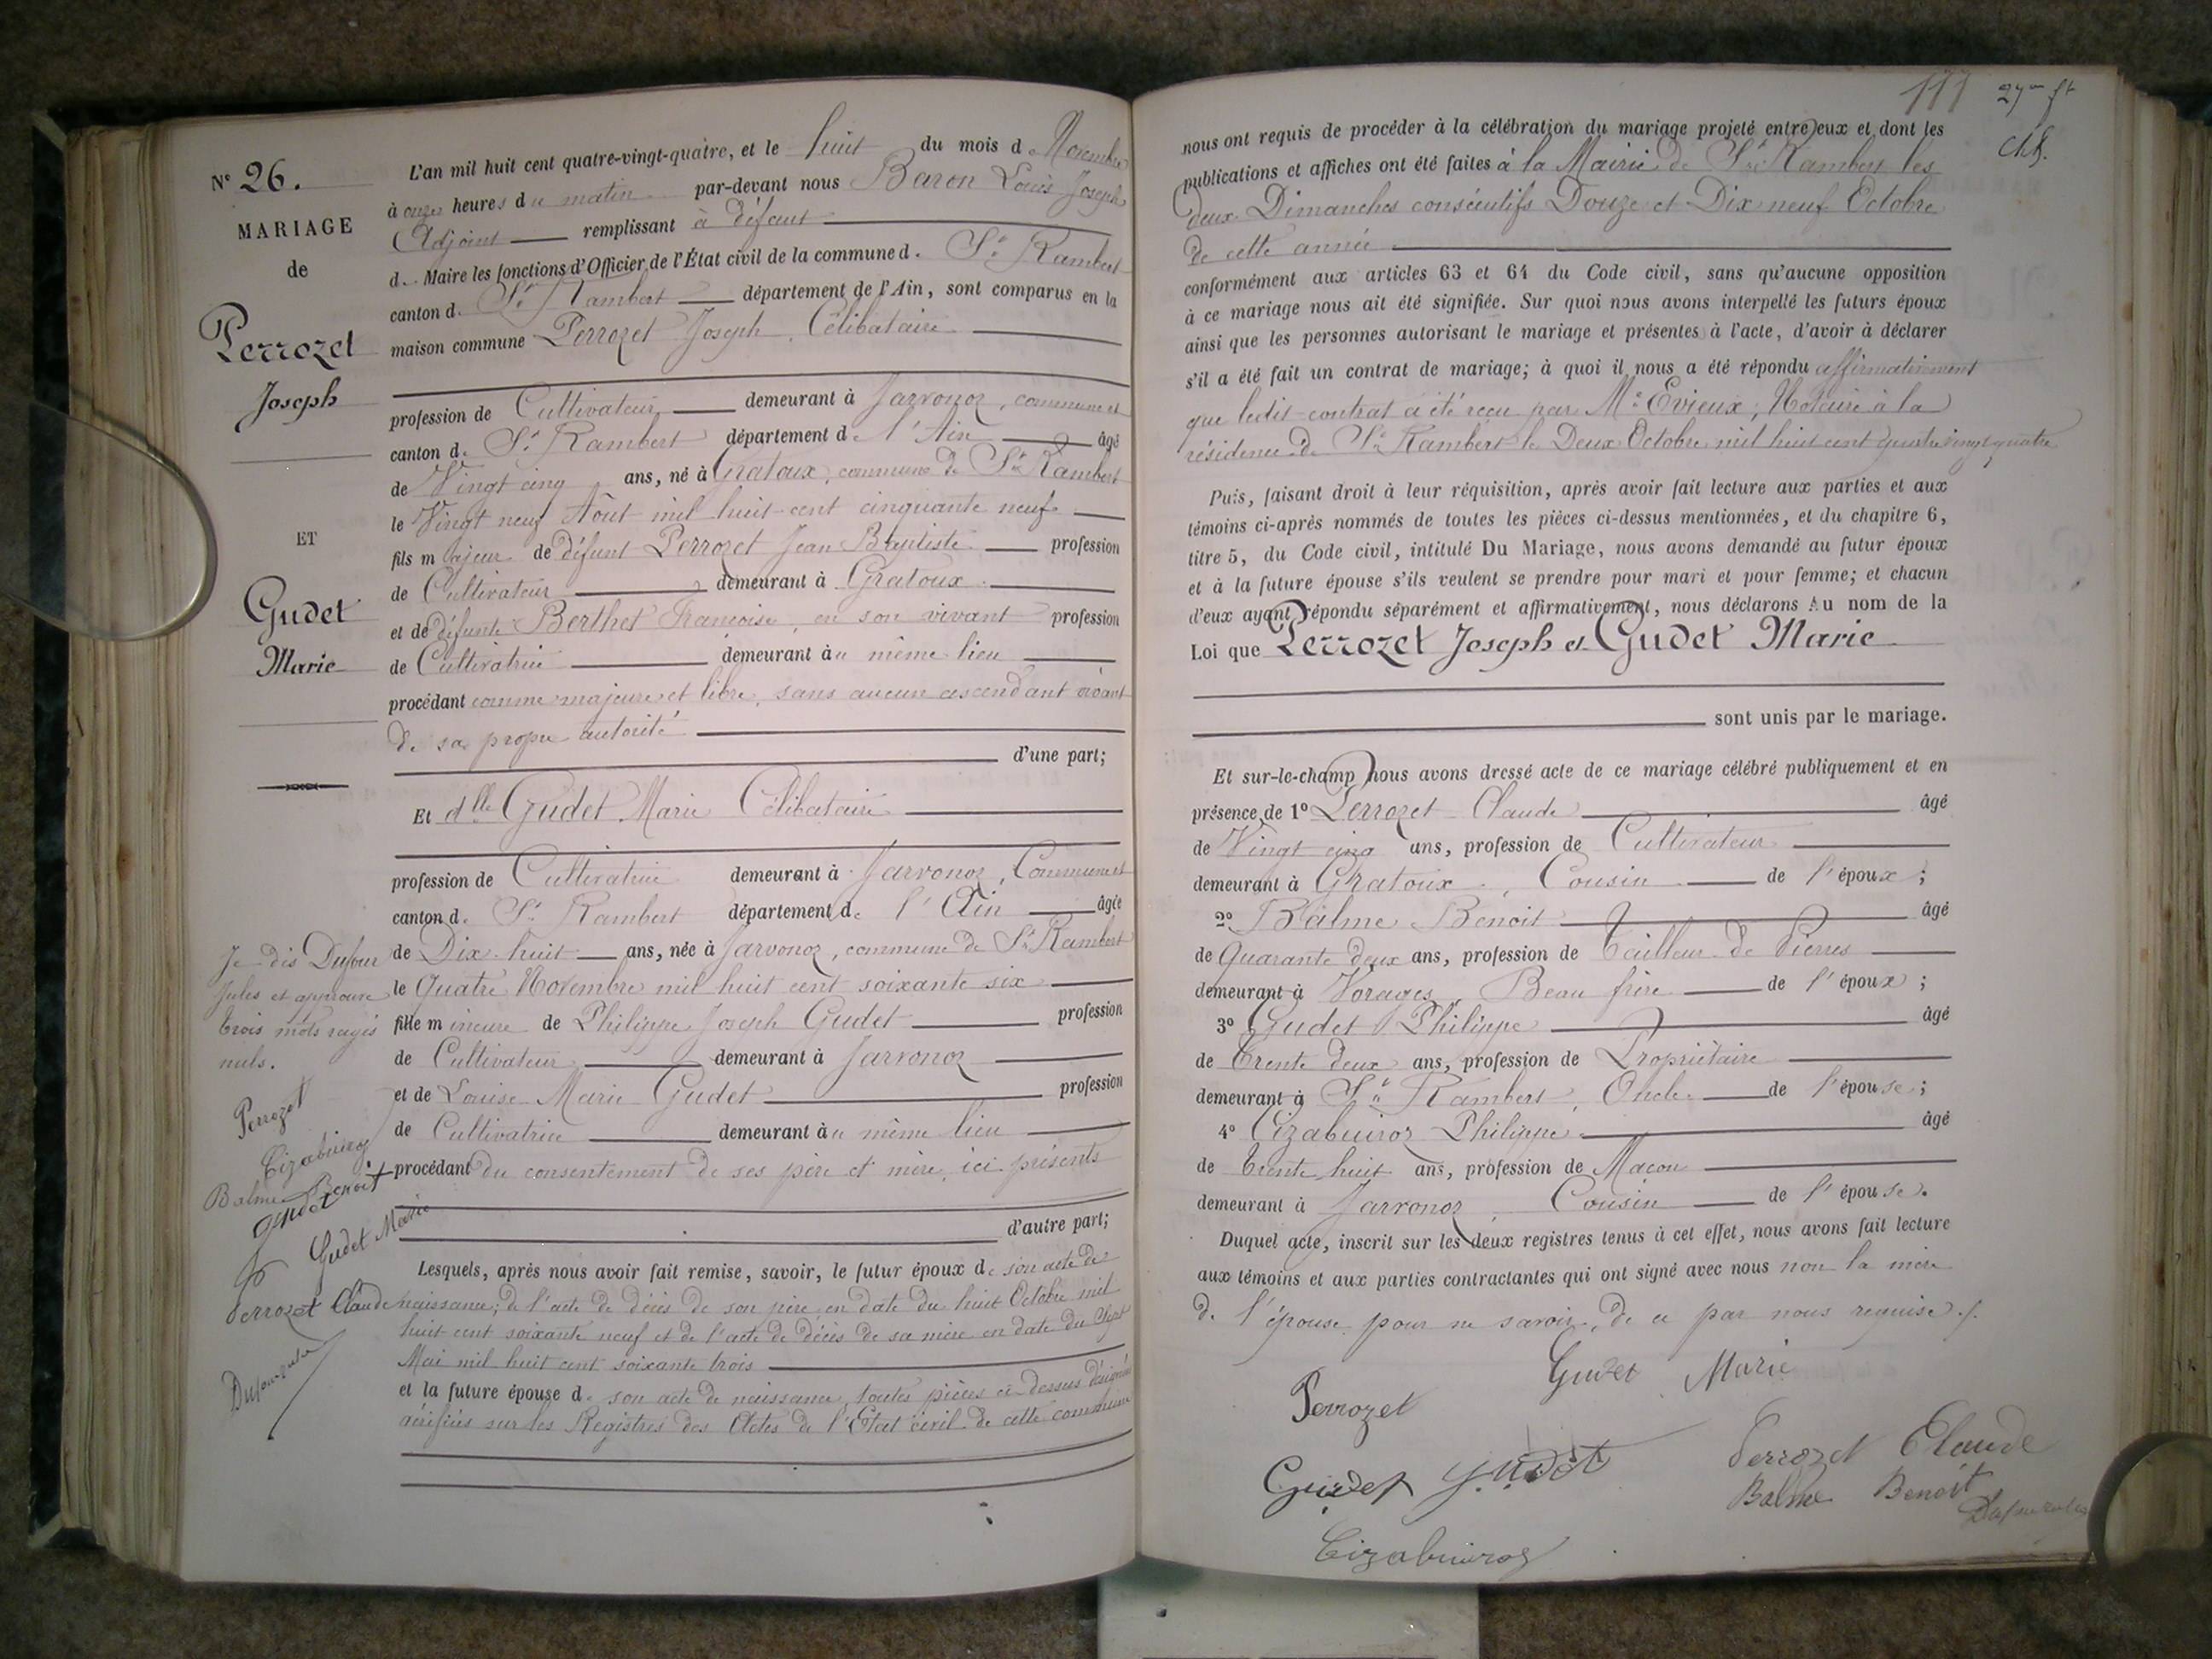 N° 26.
MARIAGE
de
Perrozet
Joseph
ET
Gudet
Marie
Je dis Dufour
Jules et approuve
trois mots rayés
nuls.
Perrozet
Cizabuiroz
Balme Benoit
Gudet
Gudet Marie
Perrozet Claude
L'an mil huit cent quatre-vingt-quatre, et le huit du mois de Novembre
à onze heures du matin par-devant nous Baron Louis Joseph
Adjoint remplissant à défaut
de Maire les fonctions d'Officier de l'État civil de la commune de St Rambert
canton de St Rambert département de l'Ain, sont comparus en la
maison commune Perrozet Joseph, Célibataire
profession de Cultivateur demeurant à Javronoz, commune et
canton de St Rambert département de l'Ain âgé
de Vingt cinq ans, né à Gratoux, commune de St Rambert
le Vingt neuf Août mil huit cent cinquante neuf
fils majeur de défunt Perrozet Jean Baptiste profession
de Cultivateur demeurant à Gratoux
et de défunte Berthet Françoise, en son vivant profession
de Cultivatrice demeurant au même lieu
procédant comme majeur et libre, sans aucun ascendant vivant
de sa propre autorité
d'une part;
Et dlle Gudet Marie Célibataire
profession de Cultivatrice demeurant à Javronoz, Commune et
canton de St Rambert département de l'Ain âgée
de Dix huit ans, née à Javronoz, commune de St Rambert
le Quatre Novembre mil huit cent soixante six
fille mineure de Philippe Joseph Gudet profession
de Cultivateur demeurant à Javronoz
et de Louise Marie Gudet profession
de Cultivatrice demeurant au même lieu
procédant du consentement de ses père et mère, ici présents
d'autre part;
Lesquels, après nous avoir fait remise, savoir, le futur époux de son acte de
naissance; de l'acte de décès de son père en date du huit Octobre mil
huit cent soixante neuf et de l'acte de décès de sa mère en date du Sept
Mai mil huit cent soixante trois
et la future épouse de son acte de naissance, toutes pièces ci-dessus désignées
vérifiées sur les Registres des Actes de l'État civil de cette commune
111
nous ont requis de procéder à la célébration du mariage projeté entre eux et dont les
publications et affiches ont été faites à la Mairie de St Rambert les
deux Dimanches consécutifs Douze et Dix neuf Octobre
de cette année
conformément aux articles 63 et 64 du Code civil, sans qu'aucune opposition
à ce mariage nous ait été signifiée. Sur quoi nous avons interpellé les futurs époux
ainsi que les personnes autorisant le mariage et présentes à l'acte, d'avoir à déclarer
s'il a été fait un contrat de mariage; à quoi il nous a été répondu affirmativement
que ledit contrat a été reçu par Me Evieux, Notaire à la
résidence de St Rambert le Deux Octobre mil huit cent quatre vingt quatre
Puis, faisant droit à leur réquisition, après avoir fait lecture aux parties et aux
témoins ci-après nommés de toutes les pièces ci-dessus mentionnées, et du chapitre 6,
titre 5, du Code civil, intitulé Du Mariage, nous avons demandé au futur époux
et à la future épouse s'ils veulent se prendre pour mari et pour femme; et chacun
d'eux ayant répondu séparément et affirmativement, nous déclarons Au nom de la
Loi que Perrozet Joseph et Gudet Marie
sont unis par le mariage.
Et sur-le-champ nous avons dressé acte de ce mariage célébré publiquement et en
présence de 1° Perrozet Claude âgé
de Vingt cinq ans, profession de Cultivateur
demeurant à Gratoux, Cousin de l'époux;
2° Balme Benoit âgé
de Quarante deux ans, profession de Tailleur de Pierres
demeurant à Vorages, Beau frère de l'époux;
3° Gudet Philippe âgé
de Trente deux ans, profession de Propriétaire
demeurant à St Rambert, Oncle de l'épouse;
4° Cizabuiroz Philippe âgé
de Trente huit ans, profession de Maçon
demeurant à Javronoz, Cousin de l'épouse.
Duquel acte, inscrit sur les deux registres tenus à cet effet, nous avons fait lecture
aux témoins et aux parties contractantes qui ont signé avec nous non la mère
de l'épouse pour ne savoir, de ce par nous requise
Gudet Marie
Perrozet
Gudet J. Gudet
Perrozet Claude
Balme Benoit
Cizabuiroz